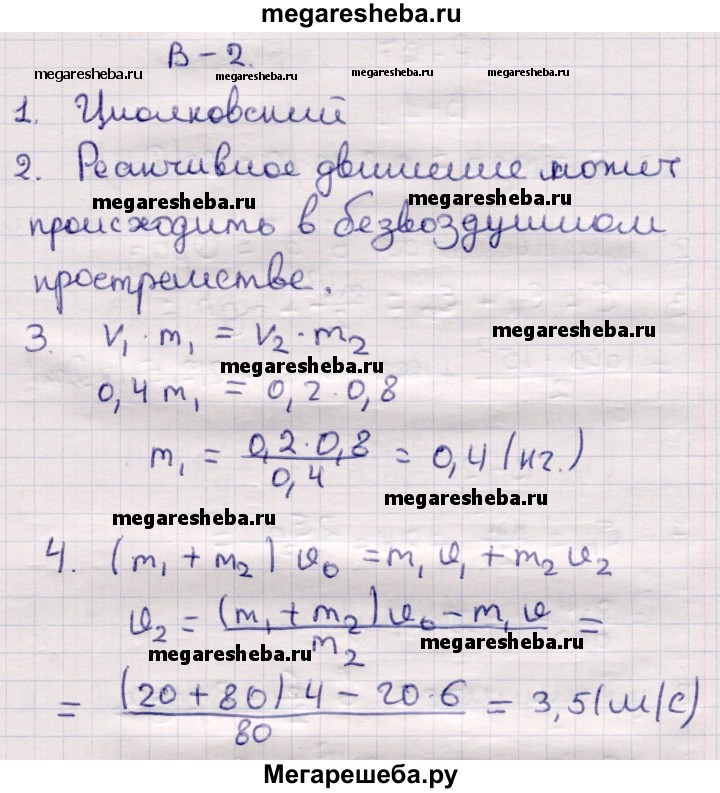 megaresheba.ru
В-2.
megaresheba.ru megaresheba.ru megaresheba.ru megaresheba.ru
1. Циолковский
2. Реактивное движение может
megaresheba.ru megaresheba.ru
происходить в безвоздушном
пространстве.
3. V₁ · m₁ = V₂ · m₂
megaresheba.ru
megaresheba.ru
0,4 m₁ = 0,2 · 0,8
m₁ = 0,2 · 0,8 / 0,4 = 0,4 (кг.)
megaresheba.ru
megaresheba.ru
4. (m₁ + m₂) υ₀ = m₁ υ₁ + m₂ υ₂
υ₂ = (m₁ + m₂) υ₀ - m₁ υ / m₂ =
megaresheba.ru megaresheba.ru
= (20 + 80) 4 - 20 · 6 / 80 = 3,5 (м/с)
Мегарешеба.ру